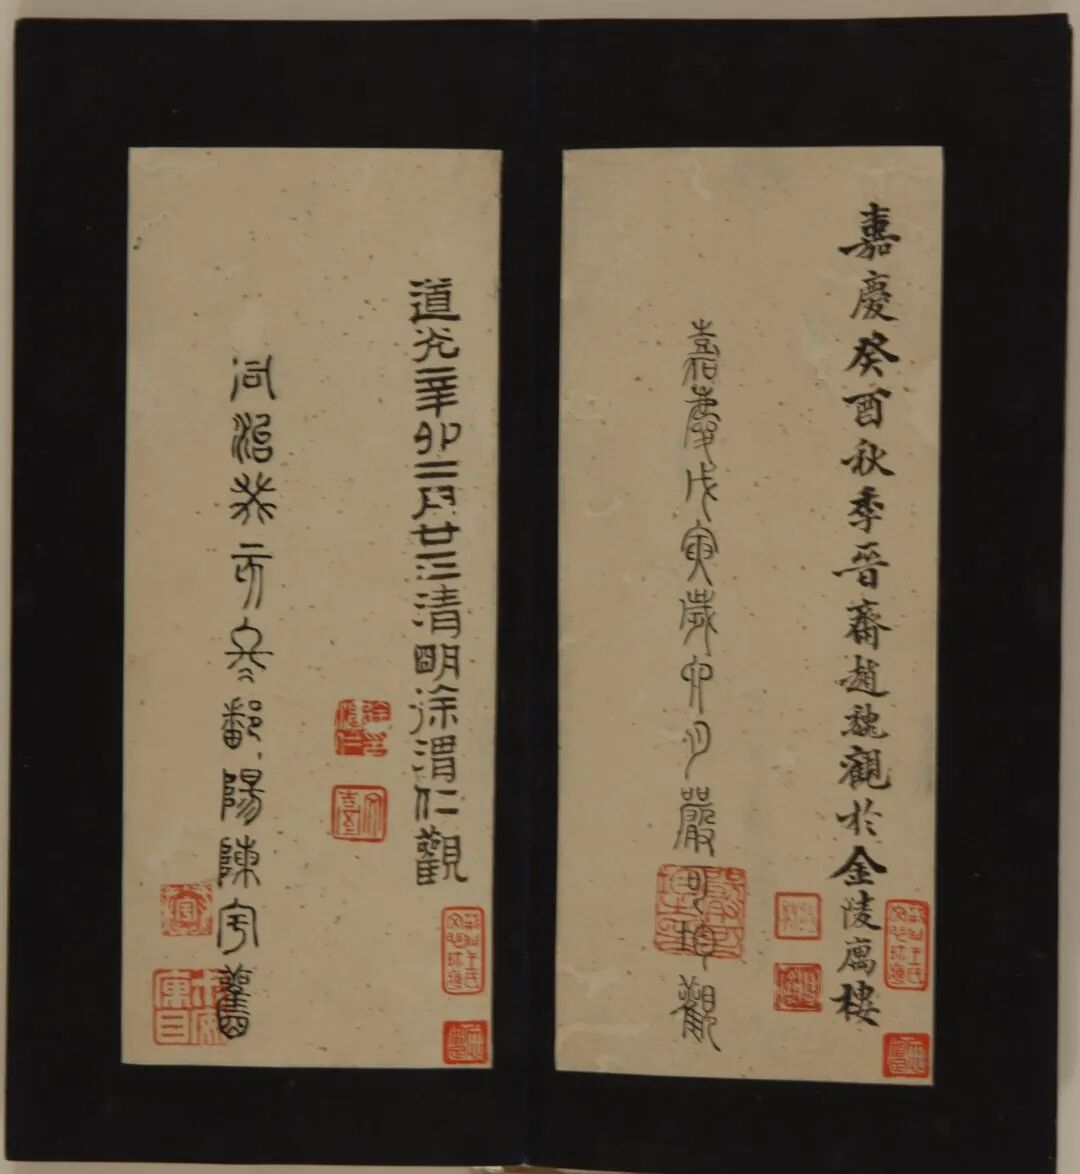 嘉慶癸酉秋季晉齋趙魏觀於金陵寓樓
嘉慶戊寅歲月嚴可均觀
道光辛卯二月廿三清明徐渭仁觀
同治癸亥冬鄱陽陳宇